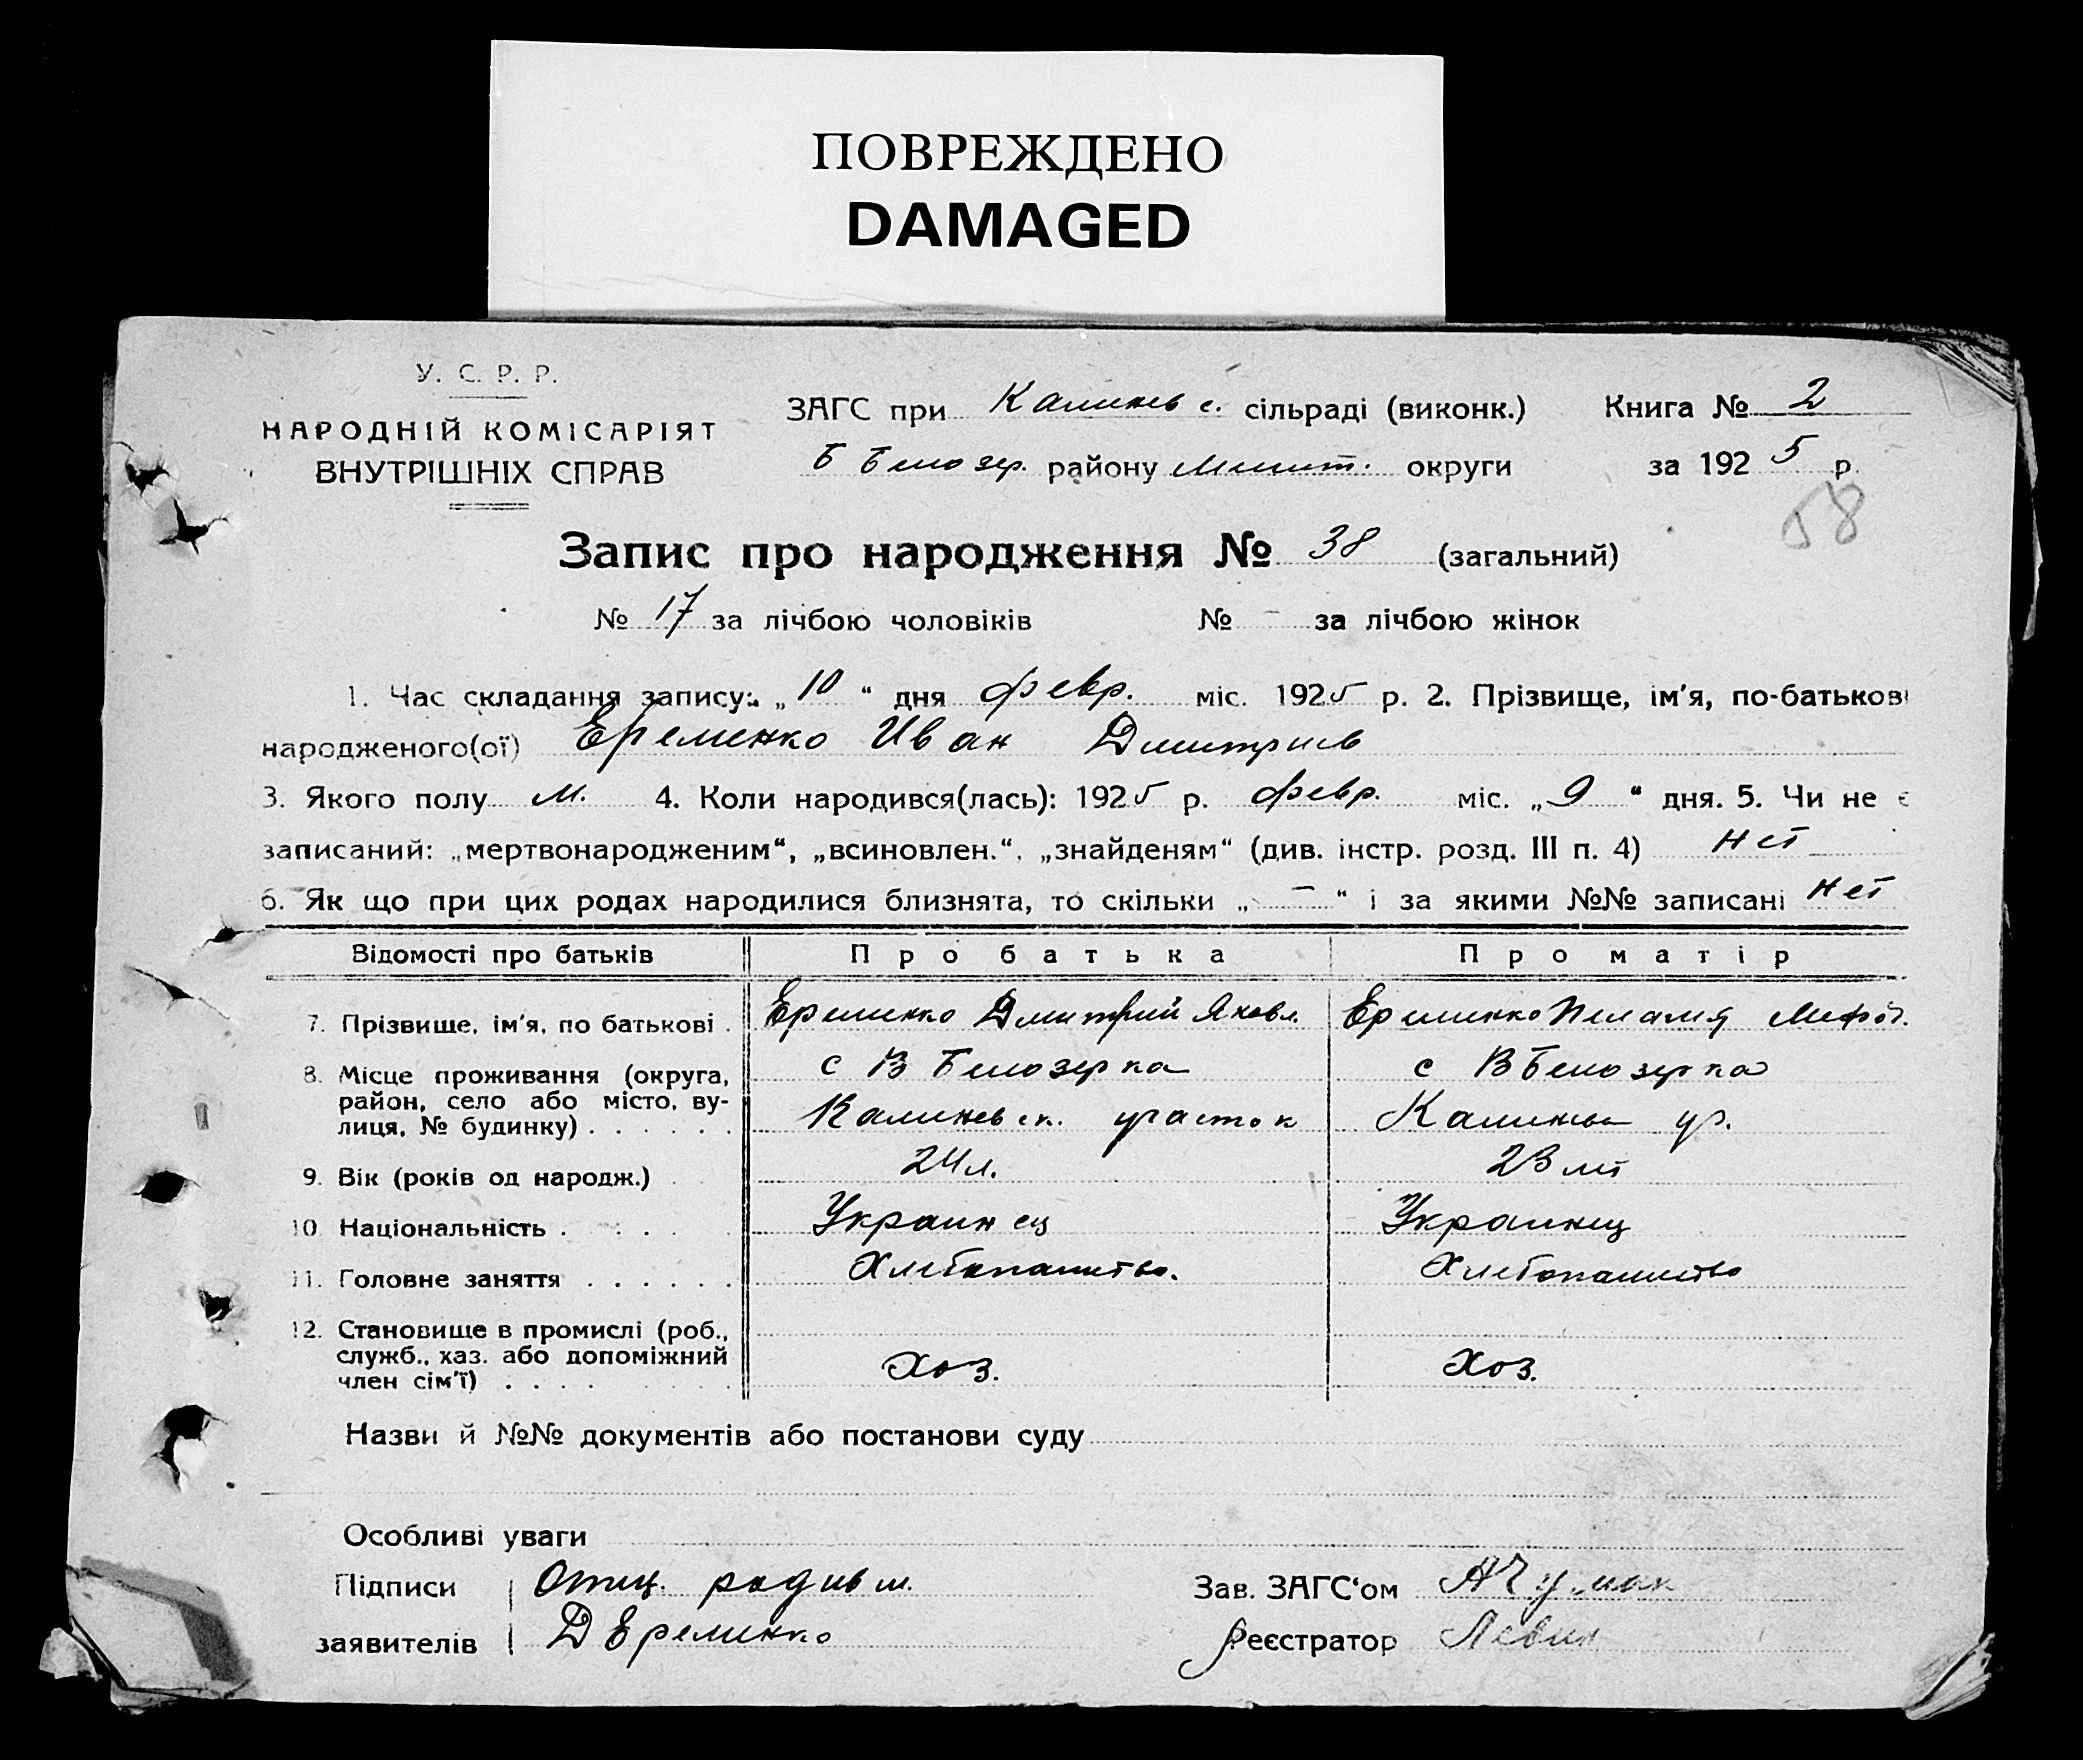 ПОВРЕЖДЕНО
DAMAGED
У. С. Р. Р.
НАРОДНІЙ КОМІСАРІЯТ
ВНУТРІШНІХ СПРАВ
ЗАГС при Калинов с. сільраді (виконк.) Книга № 2
Б Белозер. району Мелит. округи за 1925 р.
58
Запис про народження № 38 (загальний)
№ 17 за лічбою чоловіків № – за лічбою жінок
1. Час складання запису: „10“ дня февр. міс. 1925 р. 2. Прізвище, ім'я, по-батькові
народженого(ої) Еременко Иван Дмитриев
3. Якого полу м. 4. Коли народився(лась): 1925 р. февр. міс. „9“ дня. 5. Чи не є
записаний: „мертвонародженим“, „всиновлен.“, „знайденям“ (див. інстр. розд. III п. 4) нет
6. Як що при цих родах народилися близнята, то скільки „–“ і за якими №№ записані нет
Відомості про батьків Про батька Про матір
7. Прізвище, ім'я, по батькові . Еременко Дмитрий Яковл. Еременко Пелагея Мефод.
8. Місце проживання (округа, район, село або місто, вулиця, № будинку) . . . . . . с В Белозерка с В Белозерка
Калиновск. участок Калиновск уч.
9. Вік (років од народж.) 24 л. 23 лет
10 Національність . . . . Украинец Украинец
11. Головне заняття . . . . . . Хлебопашество. Хлебопашество
12. Становище в промислі (роб., служб., хаз. або допоміжний член сім'ї) . . . . Хоз. Хоз.
Назви й №№ документів або постанови суду
Особливі уваги
Підписи Отец. родив м. Зав. ЗАГС'ом АЧумак
заявителів Д Еременко Реєстратор Левин